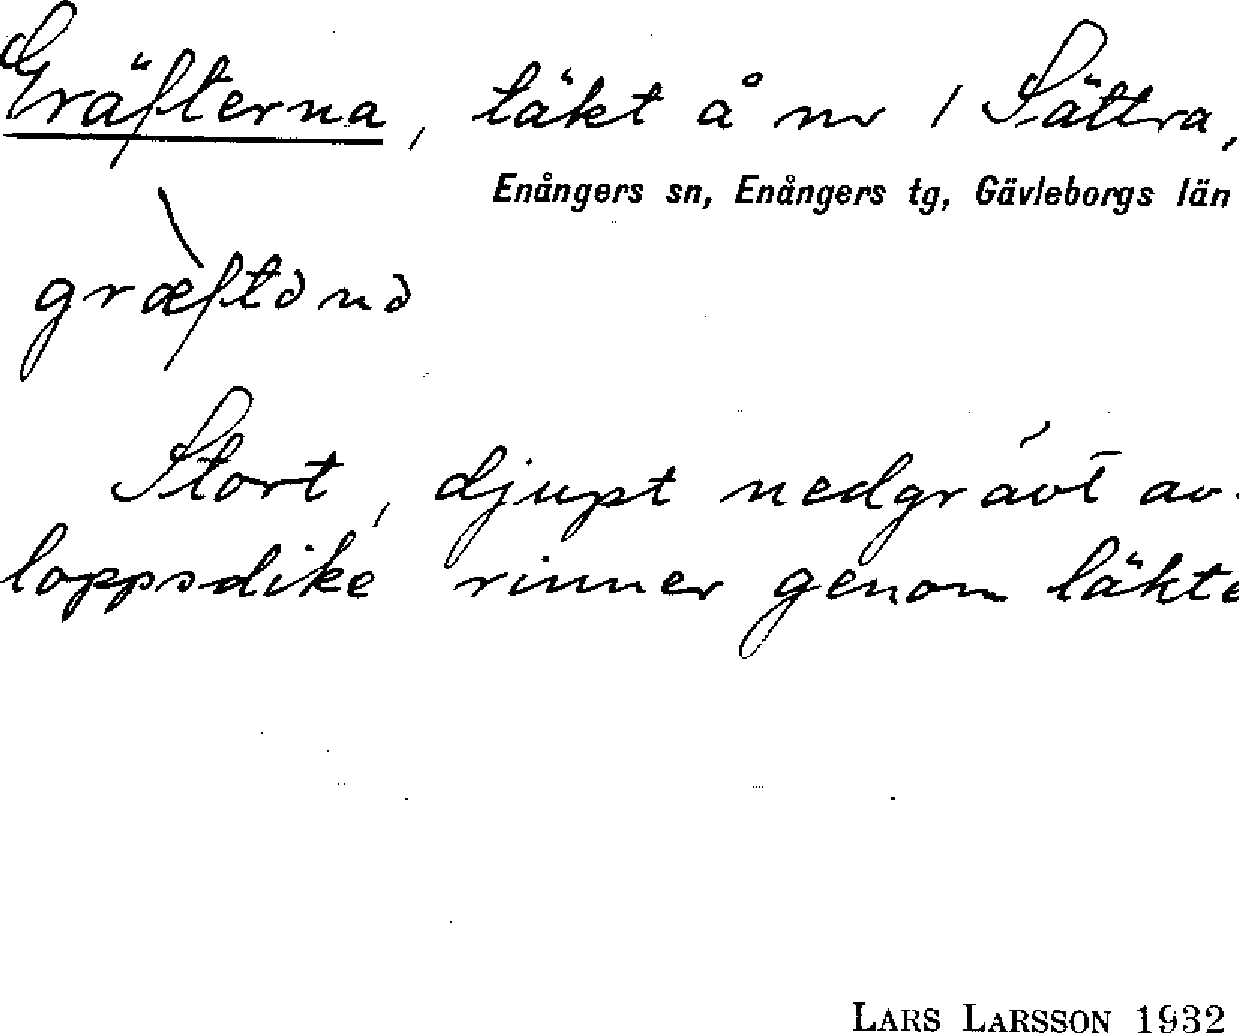 Gräfterna, täkt å nr 1 Sättra,
Enångers sn, Enångers tg, Gävleborgs län
græ̀ftənə
Stort, djupt nedgrávt av-
loppsdike rinner genom täkte
LARS LARSSON 1932